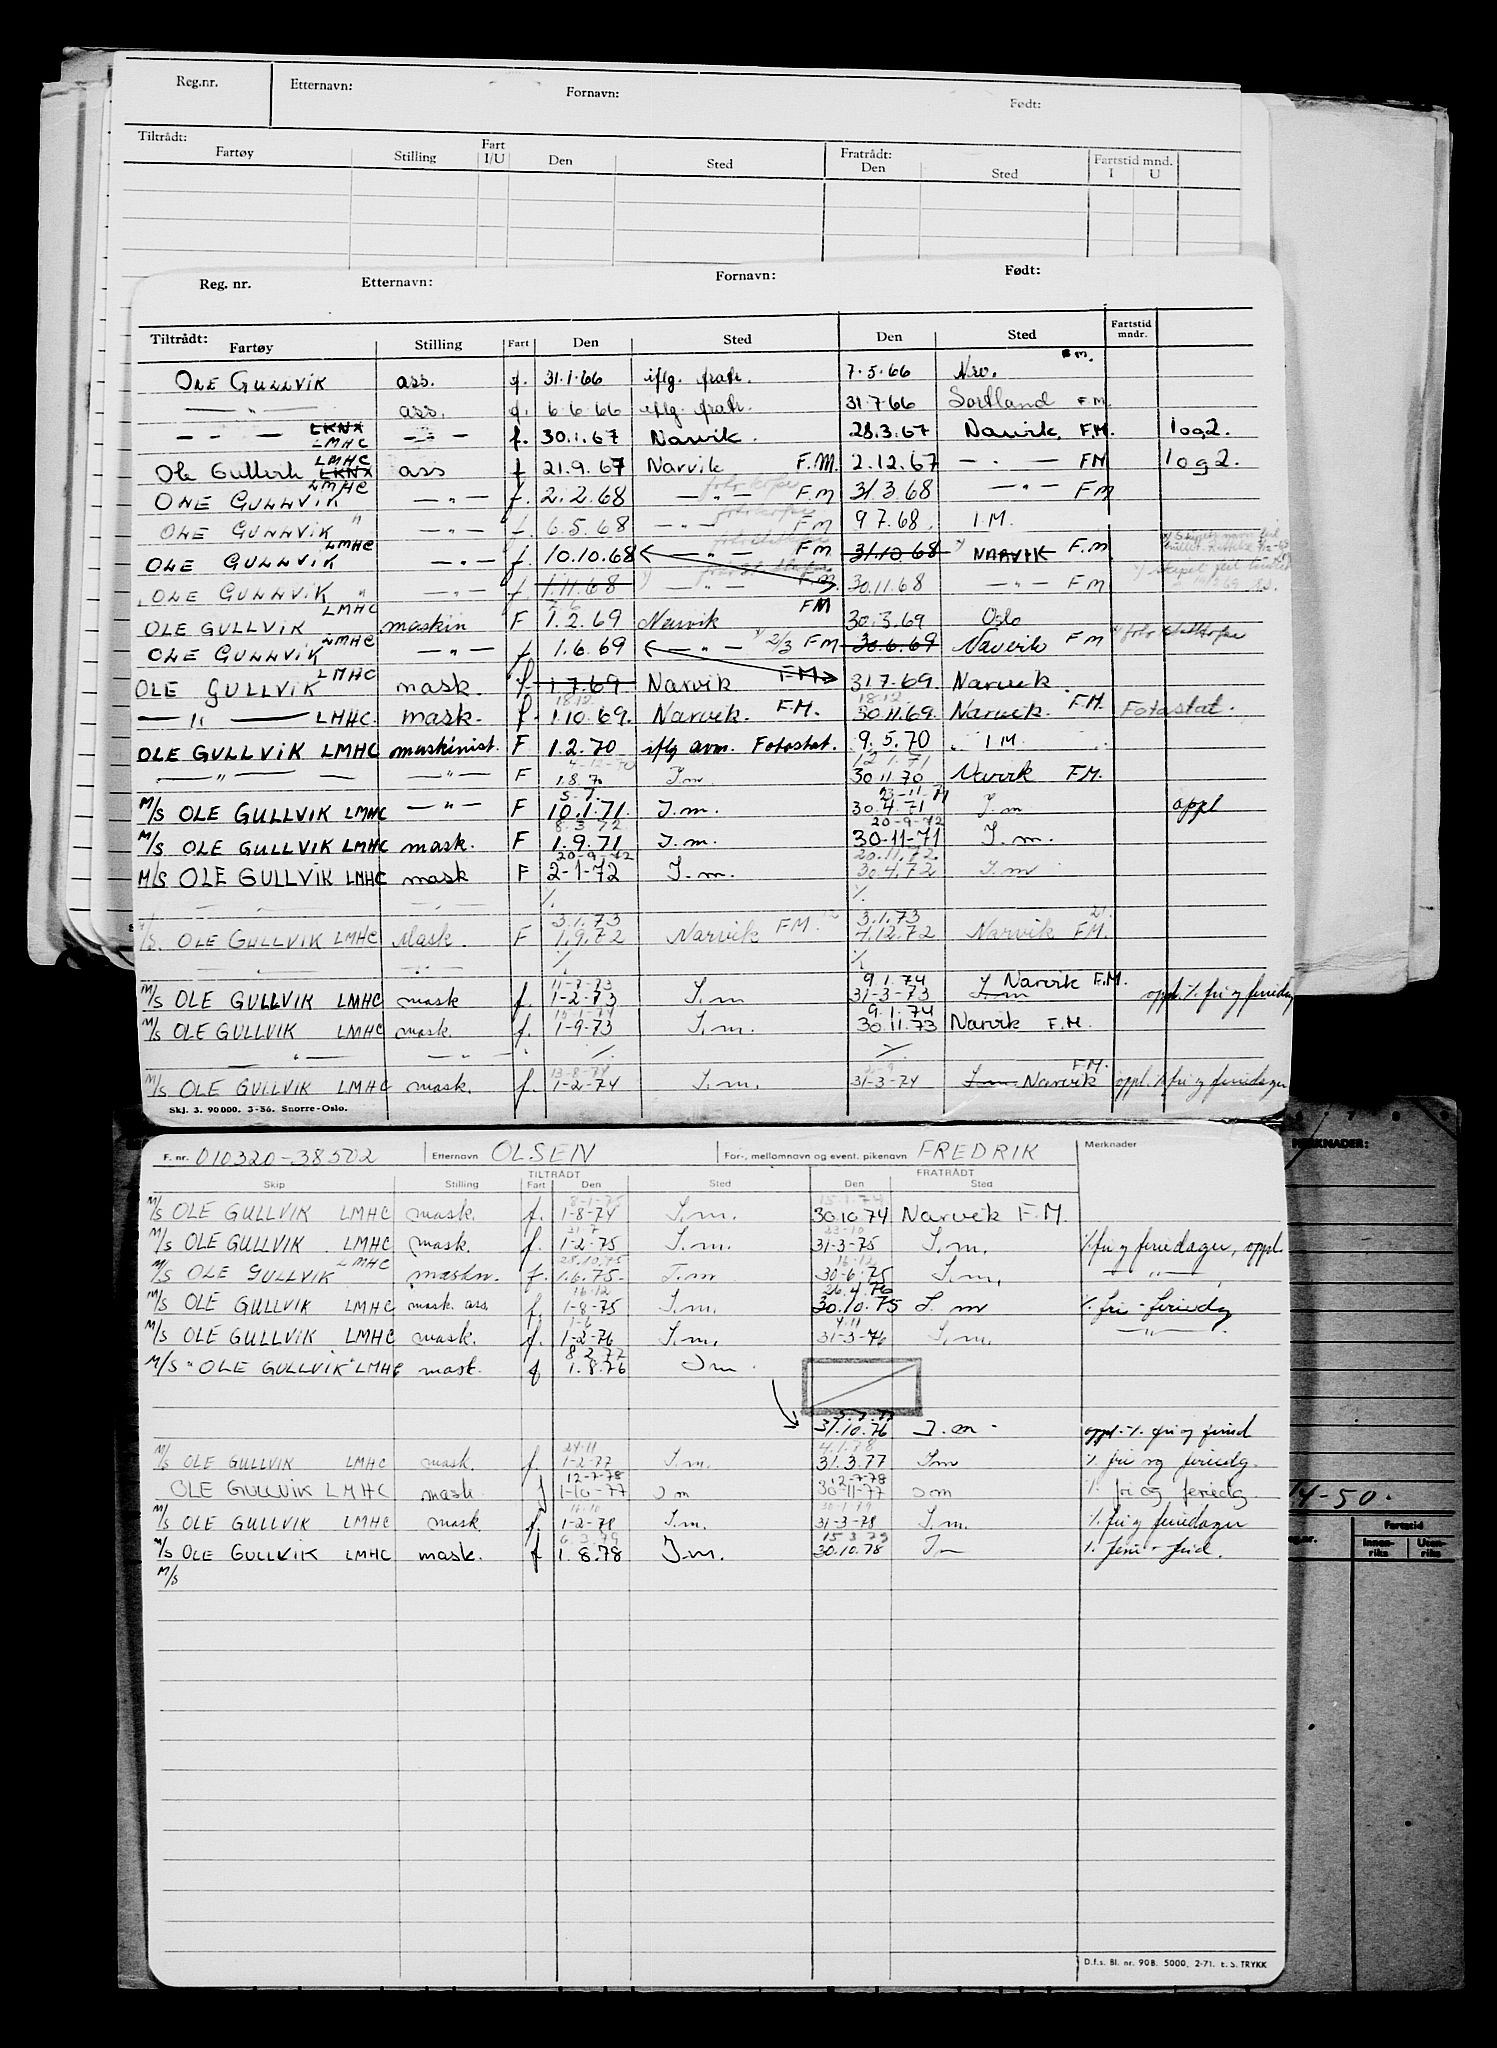 Reg.nr. Etternavn: Fornavn: Født:
Tiltrådt: Fratrådt:
Fartøy Stilling Fart I/U Den Sted Den Sted Fartstid mnd. I U
Reg. nr. Etternavn: Fornavn: Født:
Tiltrådt: Fartøy Stilling Fart Den Sted Den Sted Fartstid mndr.
OLE GULLVIK ass. f. 31.1.66 iflg. fratr. 7.5.66 Nrv. F.M.
— " — ass. f. 6.6.66 iflg fratr. 31.7.66 Sortland F.M.
— " — LKNX LMHC — " — f. 30.1.67 Narvik. 28.3.67 Narvik. F.M. log2.
Ole Gullvik LMHC LKNX ass f 21.9.67 Narvik F.M. 2.12.67 — " — FM log2.
OLE GULLVIK LMHC — " — f. 2.2.68 — " — F.M 31.3.68 — " — FM
OLE GULLVIK " — " — f 6.5.68 — " — FM 9 7.68. I.M.
OLE GULLVIK LMHC — " — f. 10.10.68 — " — FM 31.10.68 NARVIK F.M
OLE GULLVIK " — " — f. 1.11.68 — " — F.M 30.11.68 — " — FM
OLE GULLVIK LMHC maskin F 1.2.69 Narvik FM 30.3.69 Oslo
OLE GULLVIK LMHC — " — f 1.6.69 — " — 2/3 FM 30.6.69 Narvik FM
OLE GULLVIK LMHC mask. f. 1.7.69 Narvik F.M. 31.7.69. Narvik
— " — LMHC. mask. f. 18.12. 1.10.69. Narvik. F.M. 18.12. 30.11.69. Narvik. F.M. Fotostat.
OLE GULLVIK LMHC maskinist. F 1.2.70 iflg avm. Fotostat. 9.5.70 I M.
— " — — " — F 4-12-70 1.8.70 I m. 12 1.71 30 11 70 Narvik F.M.
M/S OLE GULLVIK LMHC — " — F 5.7. 10.1.71. I.m. 23-11-71 30.4.71 I.m oppl
M/S OLE GULLVIK LMHC mask. F 8.3.72 1.9.71 I.m. 20-9-72 30-11-71 I.m.
M/S OLE GULLVIK LMHC mask F 20-9-72 2-1-72 I.m. 20.11.72. 30.4.72 I.m
— " — — " — % %
M/S OLE GULLVIK LMHC Mask. F 3.1.73 1.9.72 Narvik F.M. 3.1.73 7.12.72 Narvik F.M.
— " — — " — % %
M/S OLE GULLVIK LMHC mask f. 11-7-73 1-2-73 I.m 9 1.74 31-3-73 I m Narvik F.M. oppl. % fri og feriedag
M/S OLE GULLVIK LMHC mask. f. 15-1-74 1-9-73 I.m. 9.1.74 30.11.73 Narvik F.M.
— " — — " — % %
M/S OLE GULLVIK LMHC mask. f. 13-8-74 1-2-74 I.m. 31-3-74 I.m Narvik F.M. oppl. % fri og feriedager
Skj. 3. 90000. 3-56. Snorre-Oslo.
F. nr. 010320-38502 Etternavn OLSEN For-, mellomnavn og event. pikenavn FREDRIK Merknader
TILTRÅDT FRATRÅDT
Skip Stilling Fart Den Sted Den Sted
M/S OLE GULLVIK LMHC mask. f. 8-1-75 1-8-74 I.m. 30.10.74 Narvik F.M.
M/S OLE GULLVIK LMHC mask. f. 31.7 1-2-75 I.m. 23-10 31-3-75 I.m. % fri og feriedager, oppl.
M/S OLE GULLVIK LMHC maskn. f. 28.10.75 1.6.75. I.m 16.12 30-6.75 I.m, — " —
M/S OLE GULLVIK LMHC mask. ass. f 16.12 1-8-75 I.m. 26.4.76 30.10.75 I. m % fri - feriedg
M/S OLE GULLVIK LMHC mask. f. 1-6 1-2-76 I.m. 4.11 31-3-76 I.m. — " —
M/S "OLE GULLVIK" LMHC mask. f 8.2.77 1.8.76 I m.
31.10.76 I.m - oppl. % fri og feried
M/S OLE GULLVIK LMHC mask. f. 24.11 1-2-77 I.m. 4.1.78 31.3.77 I m % fri og feriedg.
OLE GULLVIK LMHC mask f 12-7-78 1-10-77 I m 12-7-78 30-11-77 I m % fri og feriedg.
M/S OLE GULLVIK LMHC mask. f. 16.10 1-2-78 I.m. 30-1-79 31-3-78 I.m. % fri og feriedager
M/S OLE GULLVIK LMHC mask. f 6.3.79 1.8.78 I.m. 15 3 79 30.10.78 I m % ferie - frid.
M/S
D.f.s. Bl. nr. 90B. 5000, 2-71. E.S. TRYKK
6 7 8 9
MERKNADER:
4-50.
Fartstid
Innenriks Utenriks